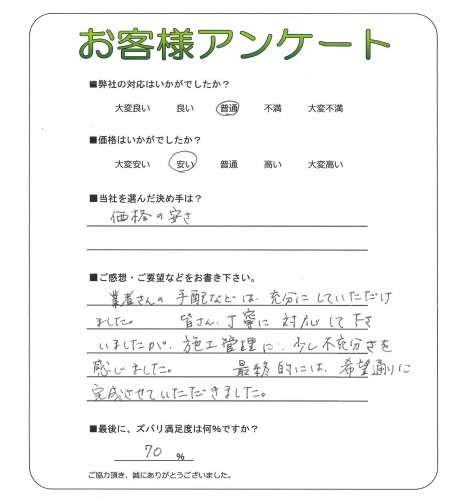 お客様アンケート
■弊社の対応はいかがでしたか？
大変良い 良い 普通 不満 大変不満
■価格はいかがでしたか？
大変安い 安い 普通 高い 大変高い
■当社を選んだ決め手は？
価格の安さ
■ご感想・ご要望などをお書き下さい。
業者さんの手配などは、充分にしていただけ
ました。 皆さん、丁寧に対応して下さ
いましたが、施工管理に、少し不充分さを
感じました。 最終的には、希望通りに
完成させていただきました。
■最後に、ズバリ満足度は何%ですか？
70 %
ご協力頂き、誠にありがとうございました。